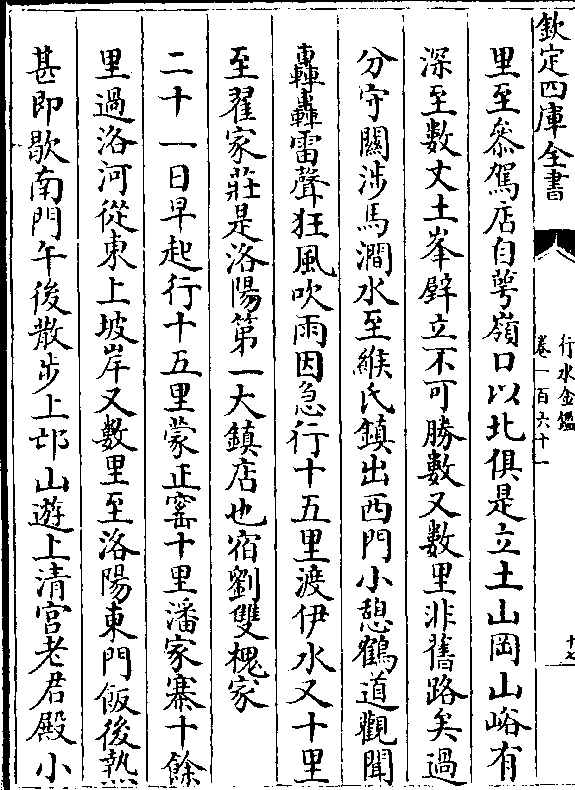 欽定四庫全書
行水金鑑
卷一百六十一
十七
里至叅駕店自萼嶺口以北俱是立土山岡山峪有
深至數丈土峯壁立不可勝數又數里非舊路矣過
分守關涉馬澗水至緱氏鎮出西門小憩鶴道觀聞
轟轟雷聲狂風吹雨因急行十五里渡伊水又十里
至翟家莊是洛陽第一大鎮店也宿劉雙槐家
二十一日早起行十五里蒙正窰十里潘家寨十餘
里過洛河從東上坡岸又數里至洛陽東門飯後熱
甚即歇南門午後散步上邙山遊上清宮老君殿小